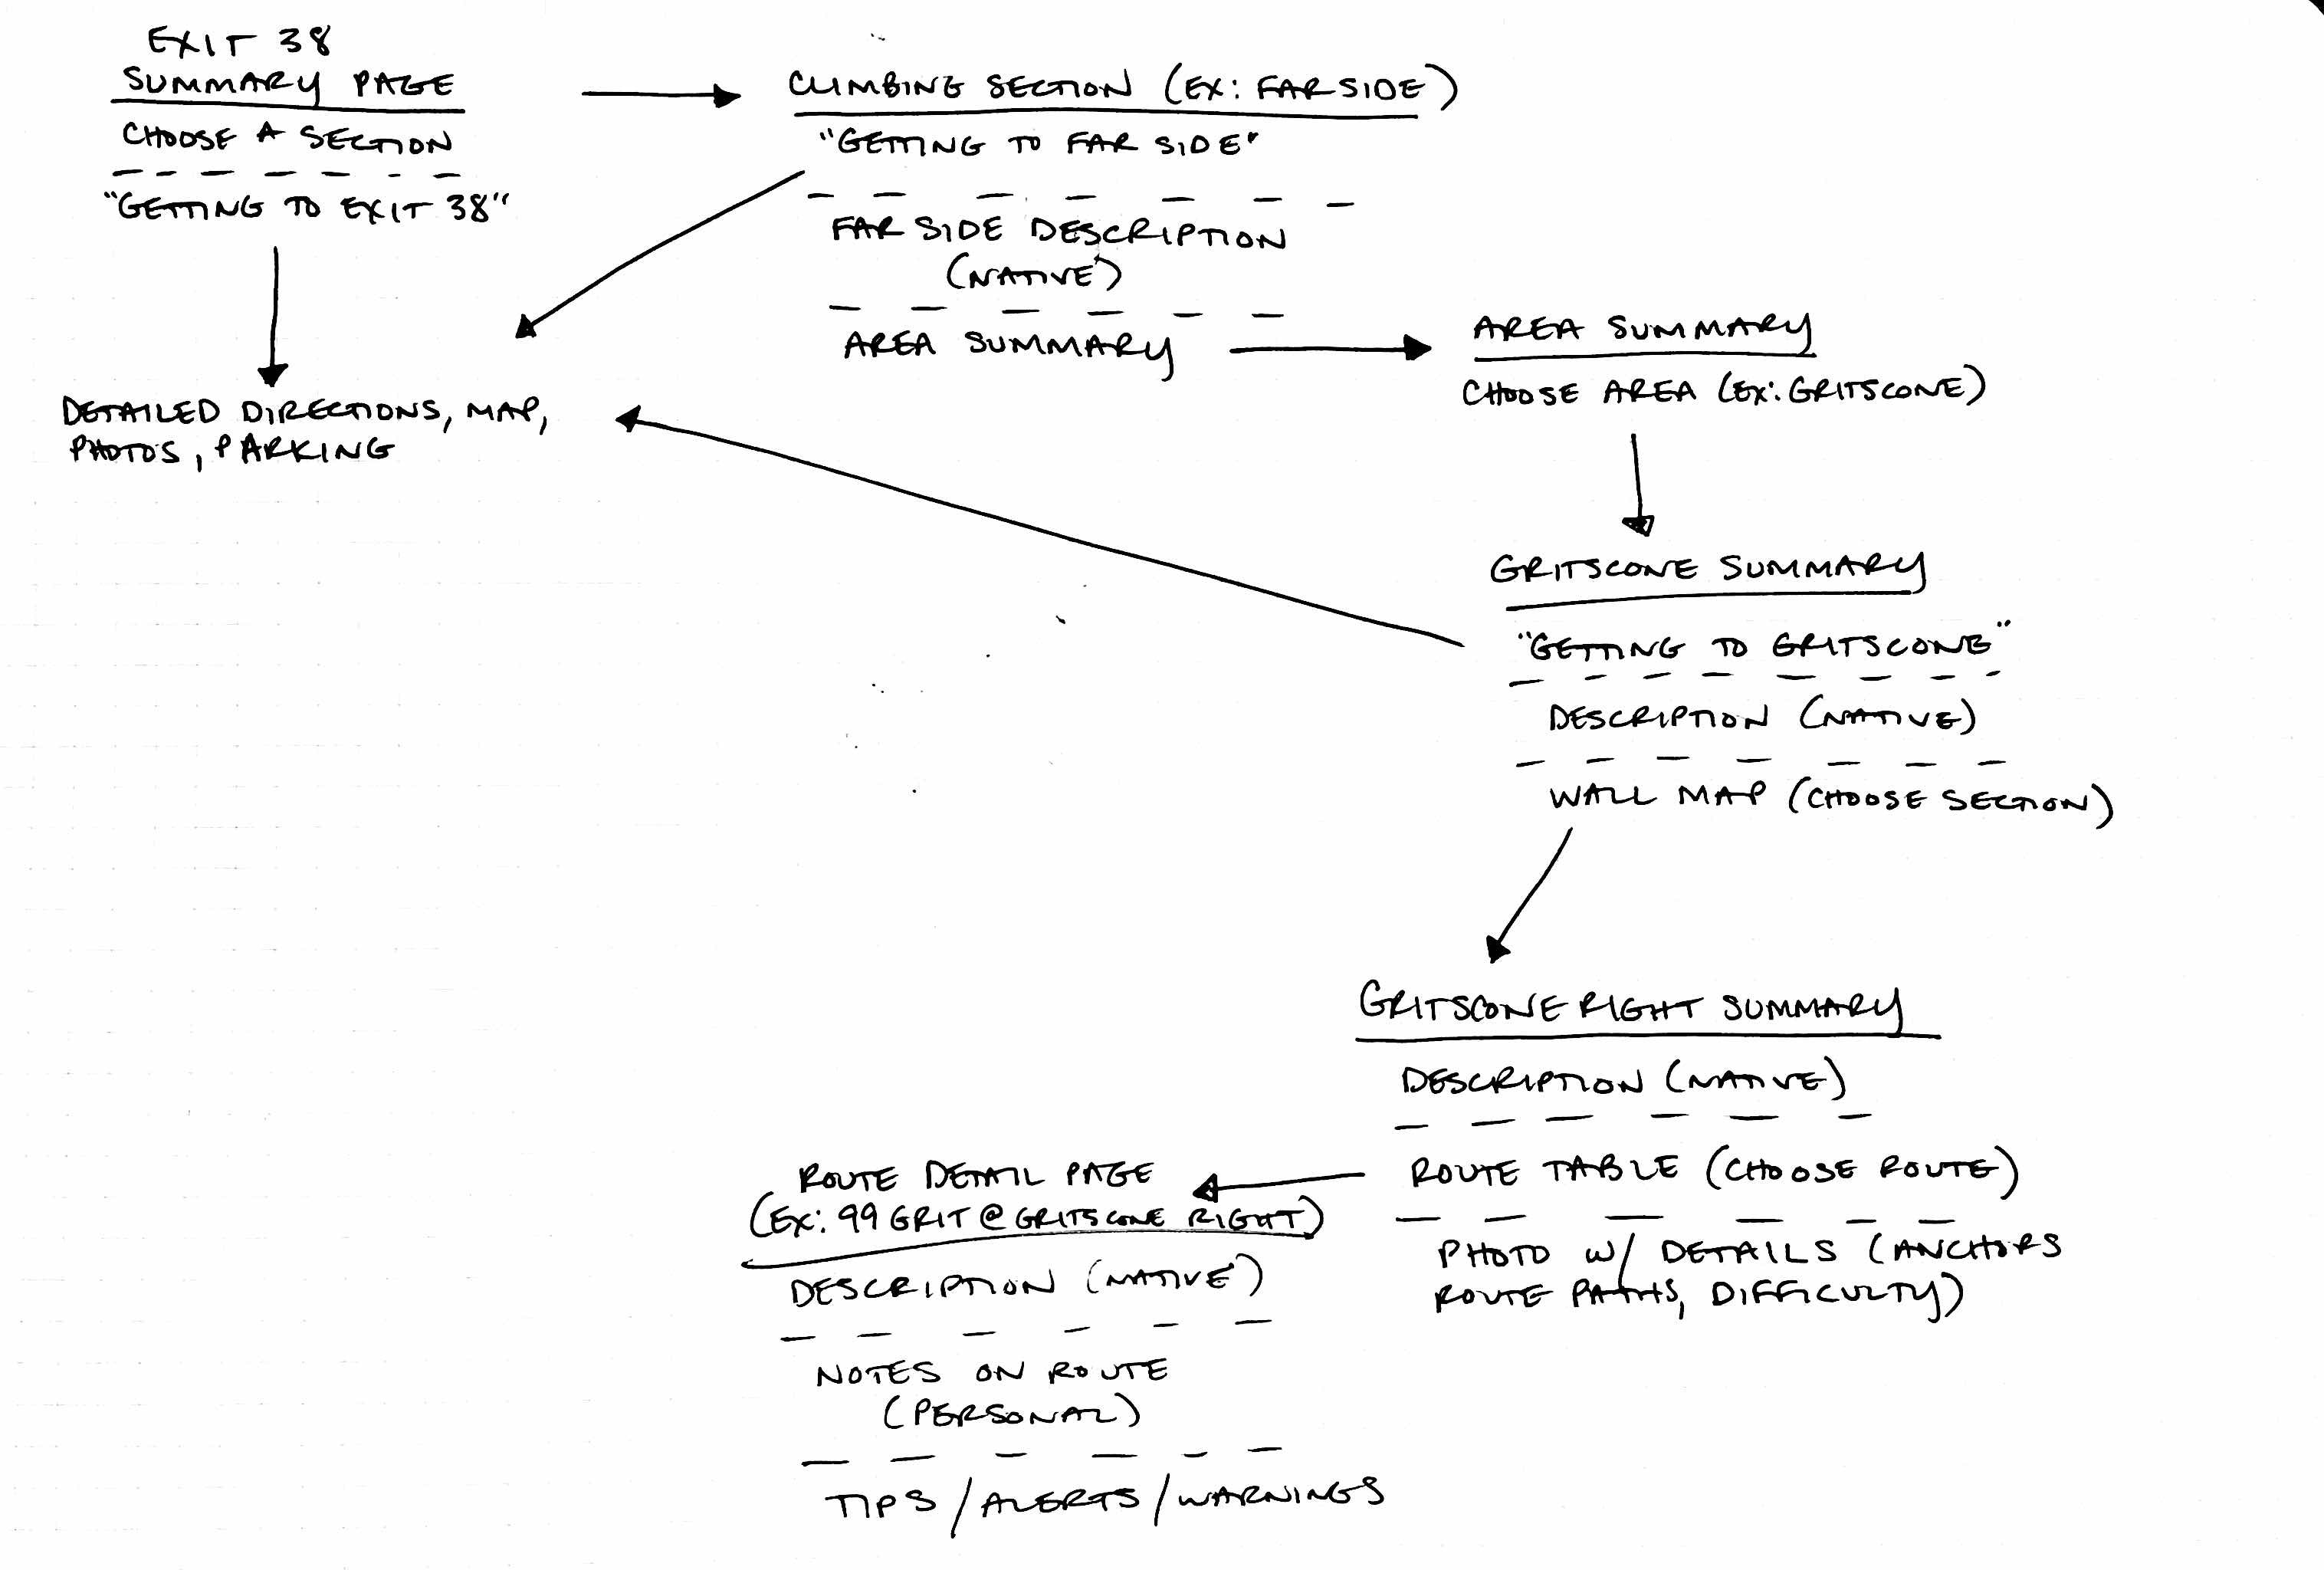 EXIT 38
SUMMARY PAGE
CHOOSE A SECTION
"GETTING TO EXIT 38"
DETAILED DIRECTIONS, MAP,
PHOTOS, PARKING
CLIMBING SECTION (EX: FAR SIDE)
"GETTING TO FAR SIDE"
FAR SIDE DESCRIPTION
(NATIVE)
AREA SUMMARY
AREA SUMMARY
CHOOSE AREA (EX: GRITSCONE)
GRITSCONE SUMMARY
"GETTING TO GRITSCONE"
DESCRIPTION (NATIVE)
WALL MAP (CHOOSE SECTION)
GRITSCONE RIGHT SUMMARY
DESCRIPTION (NATIVE)
ROUTE TABLE (CHOOSE ROUTE)
PHOTO W/ DETAILS (ANCHORS
ROUTE PATHS, DIFFICULTY)
ROUTE DETAIL PAGE
(EX: 99 GRIT @ GRITSCONE RIGHT)
DESCRIPTION (NATIVE)
NOTES ON ROUTE
(PERSONAL)
TIPS / ALERTS / WARNINGS